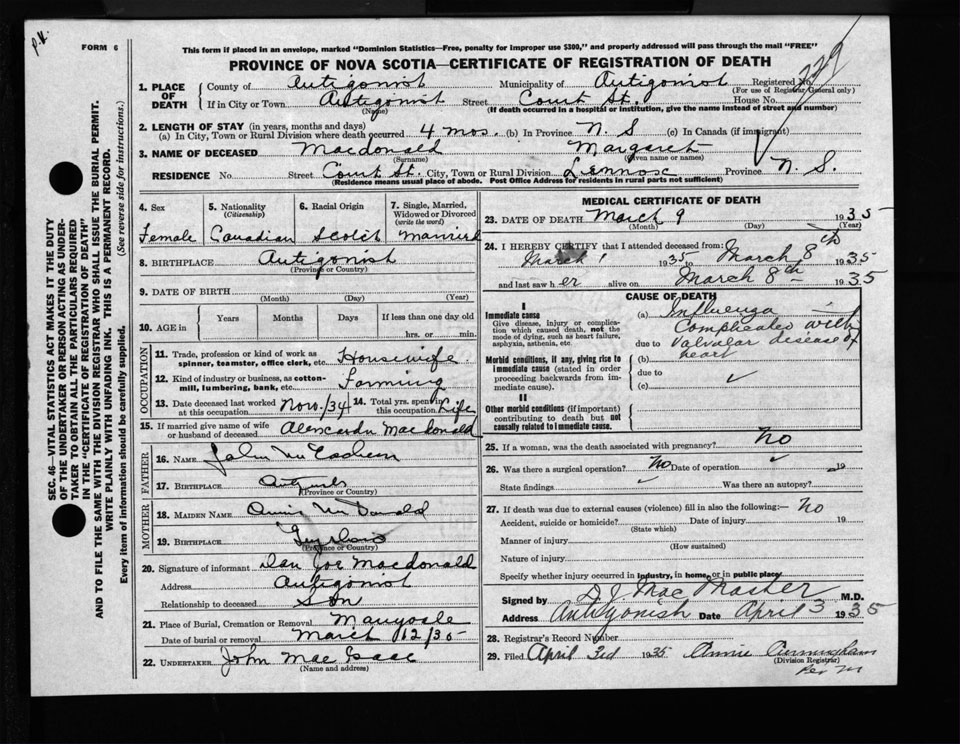 P.H.
FORM 6
229
This form if placed in an envelope, marked "Dominion Statistics—Free, penalty for improper use $300," and properly addressed will pass through the mail "FREE"
PROVINCE OF NOVA SCOTIA—CERTIFICATE OF REGISTRATION OF DEATH
1. PLACE OF DEATH County of Antigonish Municipality of Antigonish Registered No.
(For use of Registrar General only)
If in City or Town Antigonish Street Court St. House No.
(Name) (If death occurred in a hospital or institution, give the name instead of street and number)
2. LENGTH OF STAY (in years, months and days)
(a) In City, Town or Rural Division where death occurred 4 mos. (b) In Province N. S (c) In Canada (if immigrant)
3. NAME OF DECEASED Macdonald Margaret
(Surname) (Given name or names)
RESIDENCE No. Street Court St. City, Town or Rural Division Province N. S.
(Residence means usual place of abode. Post Office Address for residents in rural parts not sufficient)
4. Sex Female
5. Nationality (Citizenship) Canadian
6. Racial Origin Scotch
7. Single, Married, Widowed or Divorced (write the word) Married
8. BIRTHPLACE Antigonish
(Province or Country)
9. DATE OF BIRTH
(Month) (Day) (Year)
10. AGE in Years Months Days If less than one day old
hrs. or min.
OCCUPATION
11. Trade, profession or kind of work as spinner, teamster, office clerk, etc. Housewife
12. Kind of industry or business, as cotton-mill, lumbering, bank, etc. Farming
13. Date deceased last worked at this occupation Nov./34 14. Total yrs. spent in this occupation Life
15. If married give name of wife or husband of deceased Alexander MacDonald
FATHER
16. Name John McEachern
17. Birthplace
(Province or Country)
MOTHER
18. Maiden Name Annie McDonald
19. Birthplace
(Province or Country)
20. Signature of informant Dan Joe Macdonald
Address Antigonish
Relationship to deceased Son
21. Place of Burial, Cremation or Removal
Date of burial or removal March 12/35
22. Undertaker John MacIsaac
(Name and address)
MEDICAL CERTIFICATE OF DEATH
23. DATE OF DEATH March 9 1935
(Month) (Day) (Year)
24. I HEREBY CERTIFY that I attended deceased from:
March 1 1935 to March 8th 1935
and last saw her alive on March 8th 1935
CAUSE OF DEATH
I
Immediate cause
Give disease, injury or complication which caused death, not the mode of dying, such as heart failure, asphyxia, asthenia, etc.
(a) Influenza
Complicated with
due to Valvular disease of
(b) heart
Morbid conditions, if any, giving rise to immediate cause (stated in order proceeding backwards from immediate cause).
due to
(c)
II
Other morbid conditions (if important) contributing to death but not causally related to immediate cause.
25. If a woman, was the death associated with pregnancy? No
26. Was there a surgical operation? No Date of operation 19
State findings Was there an autopsy?
27. If death was due to external causes (violence) fill in also the following:— No
Accident, suicide or homicide? Date of injury 19
(State which)
Manner of injury
(How sustained)
Nature of injury
Specify whether injury occurred in industry, in home, or in public place
Signed by D J MacMaster M.D.
Address Antigonish Date April 3 1935
28. Registrar's Record Number
29. Filed April 3rd 1935 Annie Cunningham
(Division Registrar)
Per M
SEC. 46—VITAL STATISTICS ACT MAKES IT THE DUTY
OF THE UNDERTAKER OR PERSON ACTING AS UNDER-
TAKER TO OBTAIN ALL THE PARTICULARS REQUIRED
IN THE "CERTIFICATE OF REGISTRATION OF DEATH"
AND TO FILE THE SAME WITH THE DIVISION REGISTRAR WHO SHALL ISSUE THE BURIAL PERMIT.
WRITE PLAINLY WITH UNFADING INK. THIS IS A PERMANENT RECORD.
Every item of information should be carefully supplied. (See reverse side for instructions.)